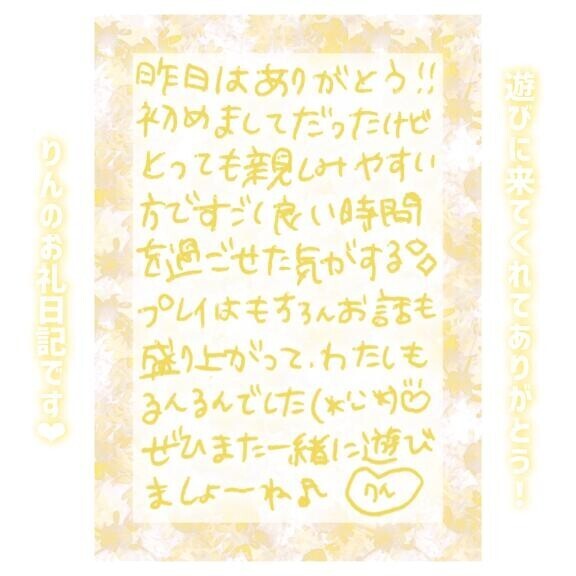 遊びに来てくれてありがとう！
昨日はありがとう!!
初めましてだったけど
とっても親しみやすい
方ですごく良い時間
を過ごせた気がする
プレイはもちろんお話も
盛り上がって、わたしも
るんるんでした(*¨*)♡
ぜひまた一緒に遊び
ましょーね♪
りん
りんのお礼日記です❤